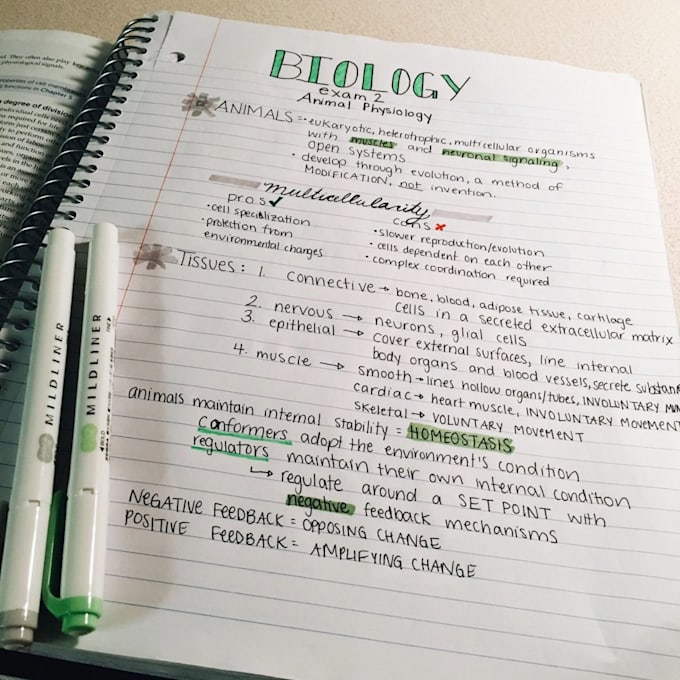 BIOLOGY
exam 2
Animal Physiology
ANIMALS = • eukaryotic, heterotrophic, multicellular organisms
with muscles and neuronal signaling,
open systems
• develop through evolution, a method of
MODIFICATION, not invention.
multicellularity
pros ✓
• cell specialization
• protection from
environmental changes
cons ✗
• slower reproduction/evolution
• cells dependent on each other
• complex coordination required
TISSUES: 1. connective → bone, blood, adipose tissue, cartilage
cells in a secreted extracellular matrix
2. nervous → neurons, glial cells
3. epithelial → cover external surfaces, line internal
body organs and blood vessels, secrete substan
4. muscle → smooth → lines hollow organs/tubes, INVOLUNTARY
cardiac → heart muscle, INVOLUNTARY MOVEMENT
skeletal → VOLUNTARY MOVEMENT
animals maintain internal stability = HOMEOSTASIS
conformers adopt the environment's condition
regulators maintain their own internal condition
↳ regulate around a SET POINT with
negative feedback mechanisms
NEGATIVE FEEDBACK = OPPOSING CHANGE
POSITIVE FEEDBACK = AMPLIFYING CHANGE
MILDLINER
MILDLINER